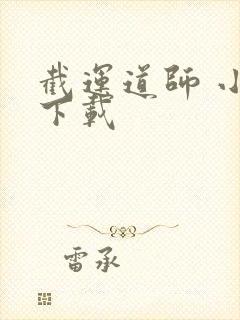 截運道師 小
下載
雷承